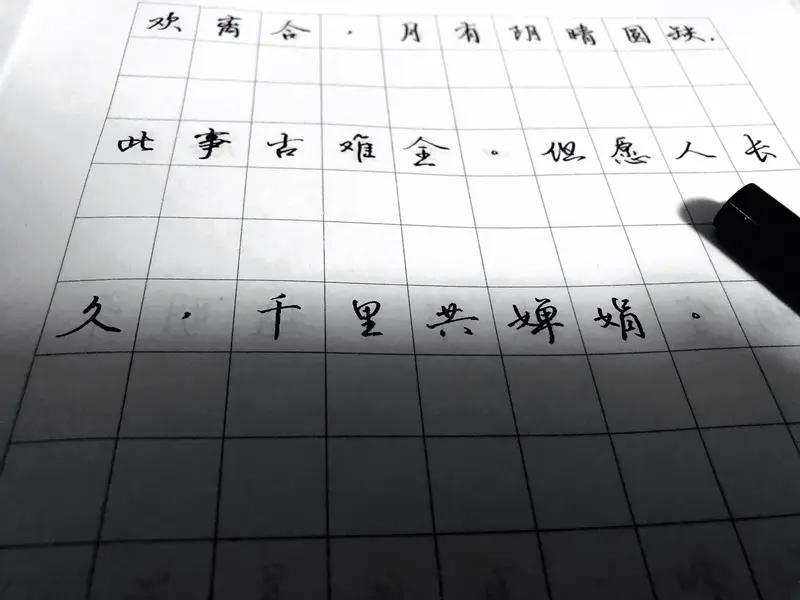 欢离合，月有阴晴圆缺.
此事古难全。但愿人长
久，千里共婵娟。